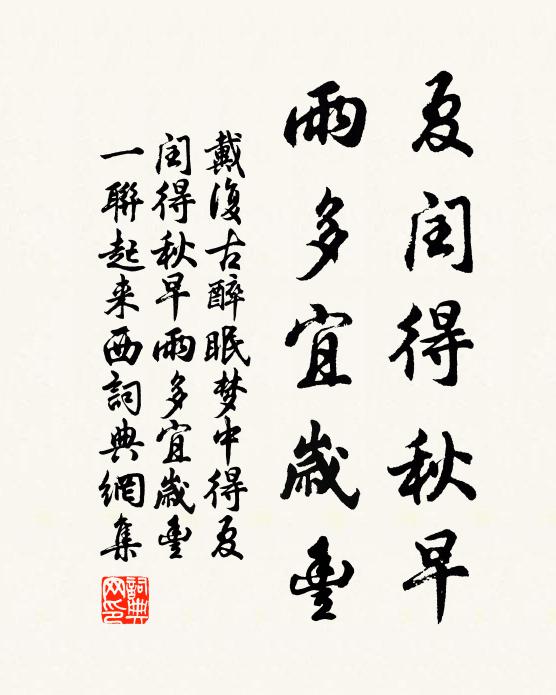 夏闰得秋早
雨多宜歲豐
戴復古醉眠梦中得夏
闰得秋早雨多宜歲豐
一聯起来西詞典網集
詞典
网印